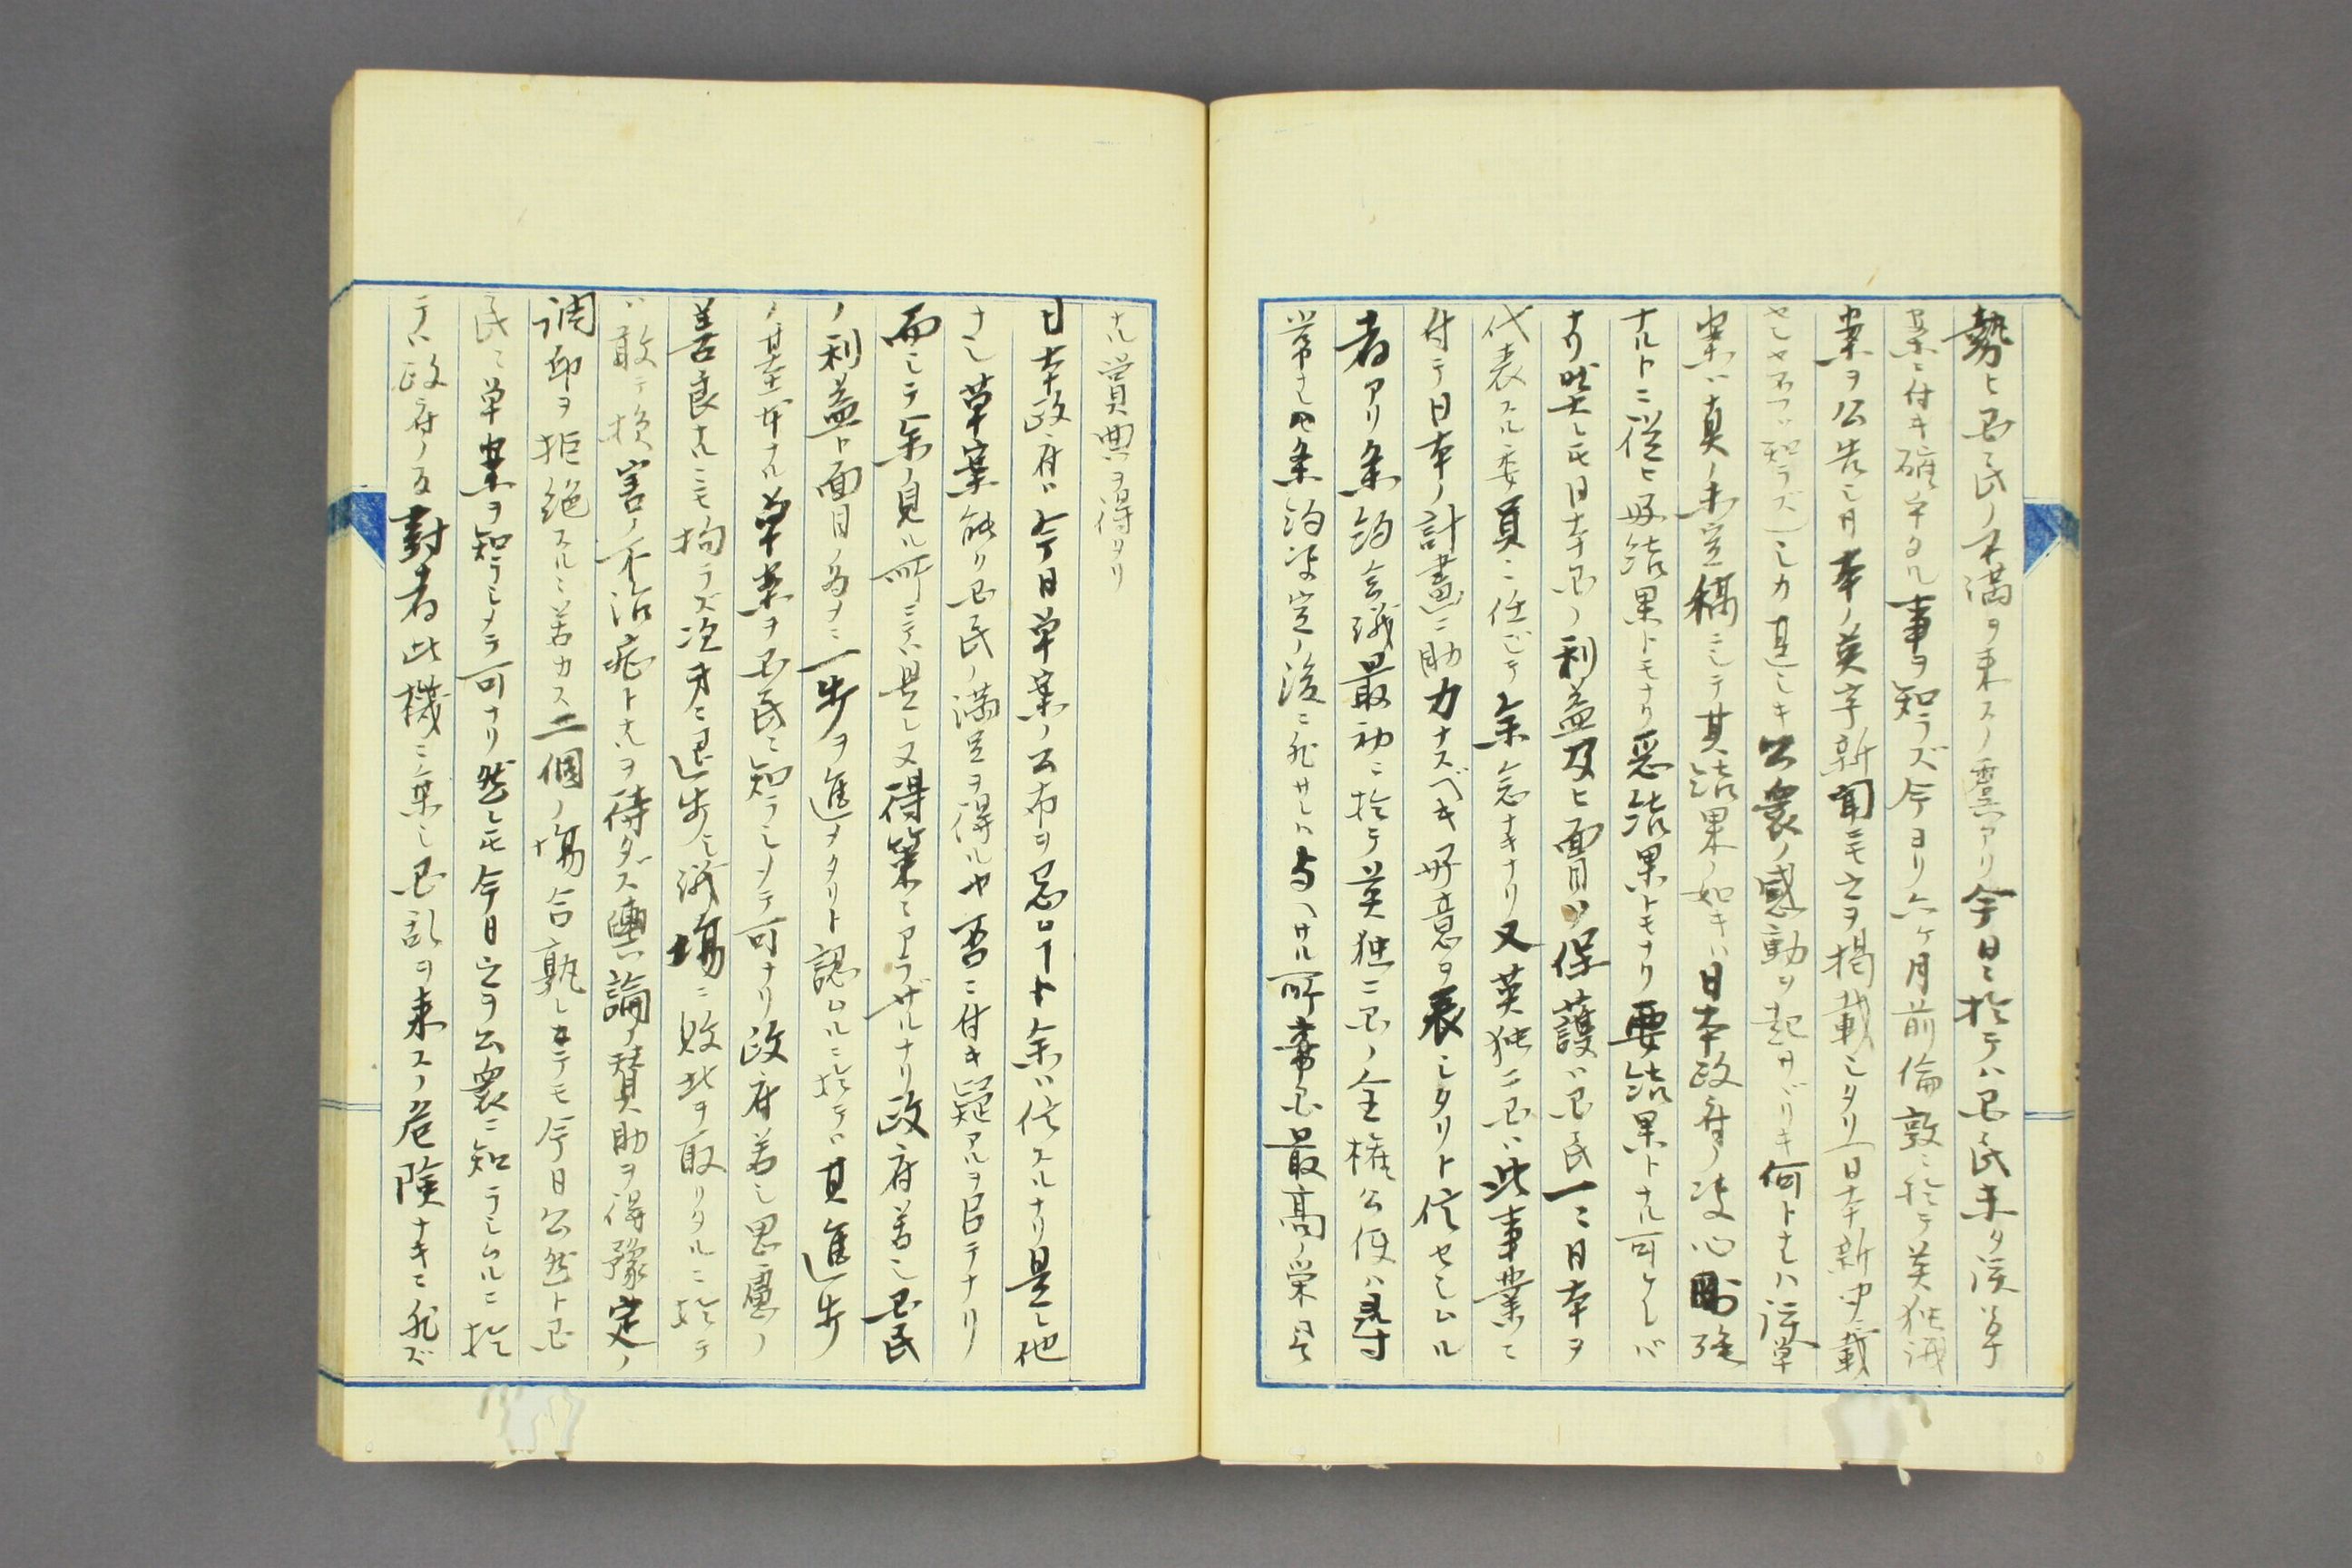 勢ヒ国民ノ不満ヲ来スノ虞アリ今日ニ於テハ国民未タ談判草
案ニ付キ確乎タル事ヲ知ラズ今ヨリ六ヶ月前倫敦ニ於テ英独議
案ヲ公告シ日本ノ英字新聞モ之ヲ掲載シタリ(日本新聞ニ載
セシヤ否ヤハ知ラズ)シカ甚シキ公衆ノ感動ヲ起サゞリキ何トナレハ該草
案ハ真ノ未定稿ニシテ其結果ノ如キハ日本政府ノ決心剛強
ナルトニ従ヒ好結果トモナリ悪結果トモナリ要結果トナル可ケレバ
ナリ然レ𪜈日本国ノ利益及ヒ面目ノ保護ハ国民一ニ日本ヲ
代表スル委員ニ任じテ余念ナキナリ又英独二国ハ此事業ニ
付テ日本ノ計畫ニ助力ナスベキ好意ヲ表シタリト信セシムル
者アリ条約会議最初ニ於テ英独二国ノ全権公使ハ尋
常ナレ𪜈条約決定ノ後ニ非サレハ与ヘサル所ノ帝国最高ノ栄誉
ナル賞典ヲ得タリ
日本政府ハ今日草案ノ公布ヲ忌ムコト余ハ信スルナリ是レ他
ナシ草案能ク国民ノ満足ヲ得ルヤ否ニ付キ疑アルヲ以テナリ
而シテ余ノ見ル所ニテハ是レ又得策ニアラザルナリ政府若シ国民
ノ利益ト面目ノ為ヲニ一歩ヲ進メタリト認ムルニ於テハ其進歩
ノ基本ナル草案ヲ国民ニ知ラシメテ可ナリ政府若シ思慮ノ
善良ナルニモ拘ラズ次才ニ退歩シ議場ニ敗北ヲ取リタルニ於テ
ハ敢テ損害ノ不治症トナルヲ待タズ輿論ノ賛助ヲ得豫定ノ
調印ヲ拒絶スルニ若カス二個ノ場合孰レニテモ今日公然ト国
民ニ草案ヲ知ラシメテ可ナリ然レ𪜈今日之ヲ公衆ニ知ラシムルニ於
テハ政府ノ反対者此機ニ乗シ国乱ヲ来スノ危険ナキニ非ズ